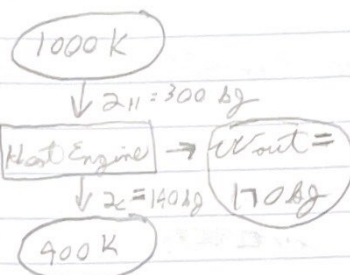 1000 K
↓ QH = 300 kJ
Heat Engine → Wout =
170 kJ
↓ Qc = 140 kJ
400 K